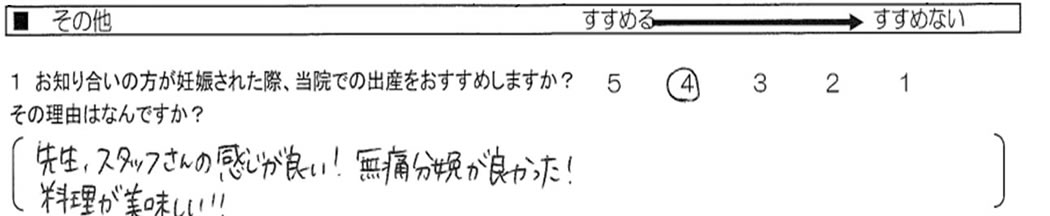 ■ その他 すすめる すすめない
1 お知り合いの方が妊娠された際、当院での出産をおすすめしますか? 5 4 3 2 1
その理由はなんですか?
先生、スタッフさんの感じが良い! 無痛分娩が良かった!
料理が美味しい!!